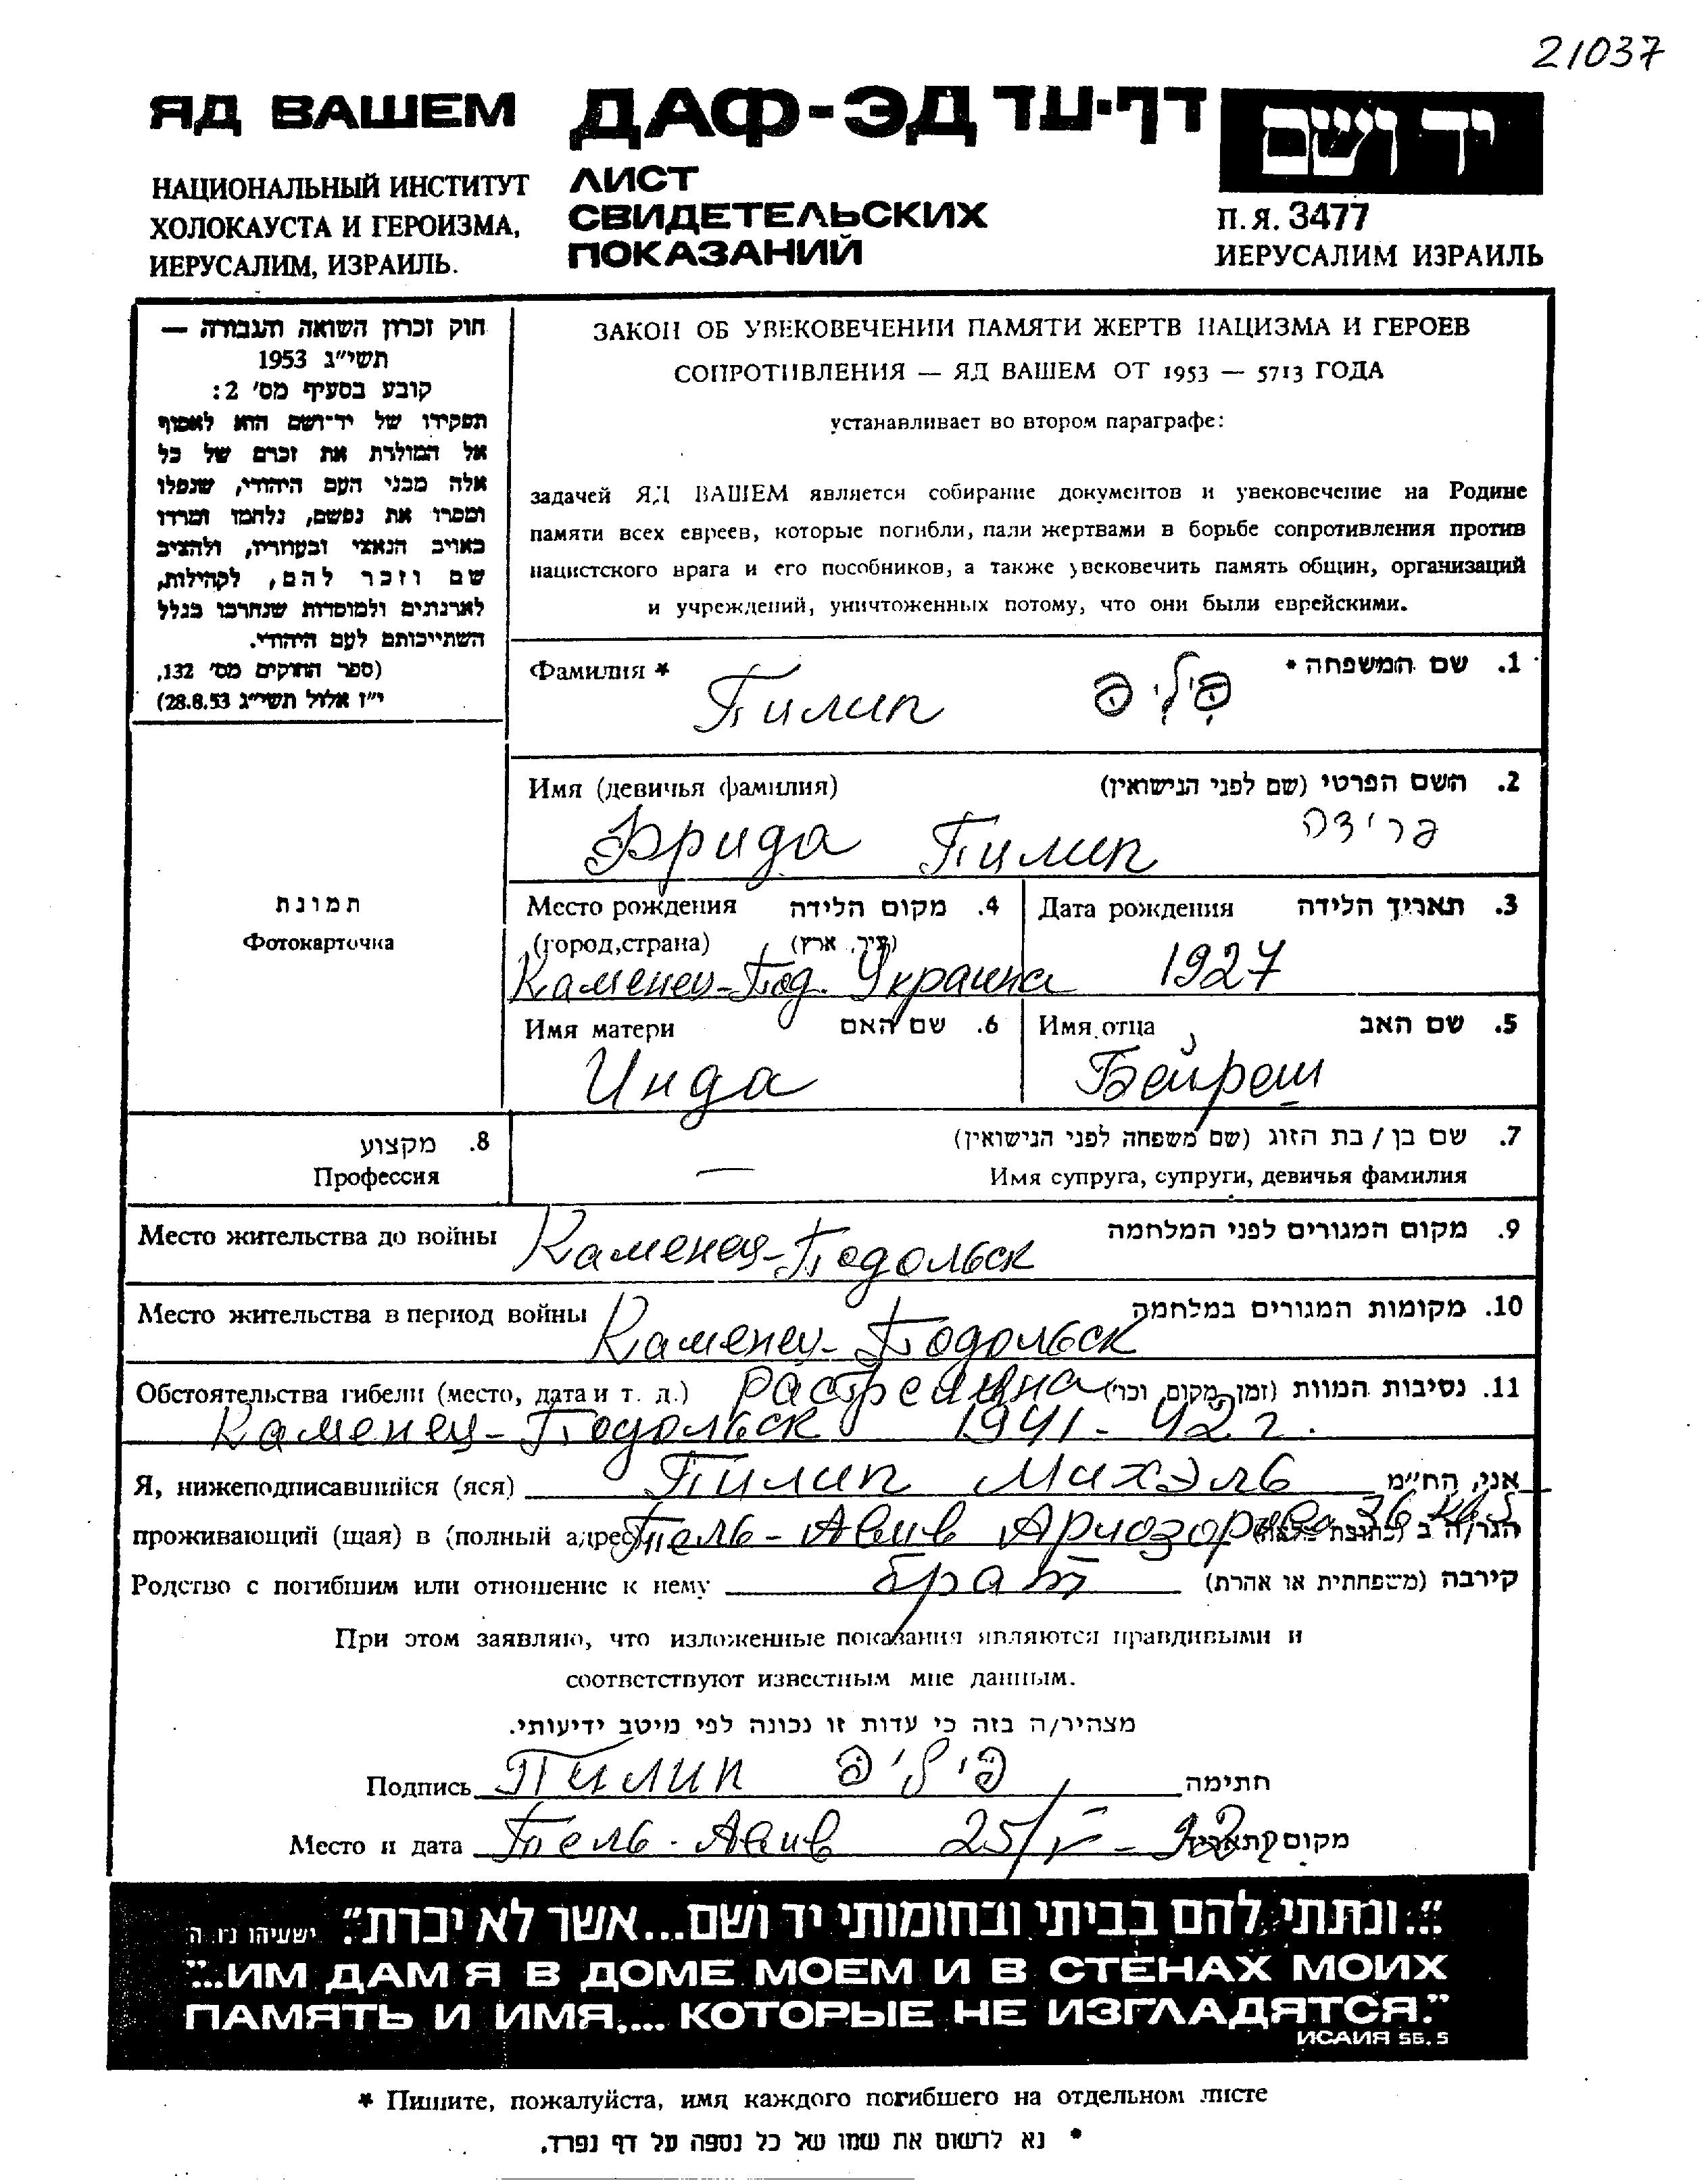 21037
ЯД ВАШЕМ ДАФ-ЭД דף-עד יד ושם
НАЦИОНАЛЬНЫЙ ИНСТИТУТ
ХОЛОКАУСТА И ГЕРОИЗМА,
ИЕРУСАЛИМ, ИЗРАИЛЬ.
ЛИСТ
СВИДЕТЕЛЬСКИХ
ПОКАЗАНИЙ
П.Я. 3477
ИЕРУСАЛИМ ИЗРАИЛЬ
חוק זכרון השואה והגבורה —
תשי"ג 1953
קובע בסעיף מס' 2:
תפקידו של יד-ושם הוא לאסוף
אל המולדת את זכרם של כל
אלה מבני העם היהודי, שנפלו
ומסרו את נפשם, נלחמו ומרדו
באויב הנאצי ובעוזריו, ולהציב
שם וזכר להם, לקהילות,
לארגונים ולמוסדות שנחרבו בגלל
השתייכותם לעם היהודי.
(ספר החוקים מס' 132,
י"ז אלול תשי"ג 28.8.53)
ЗАКОН ОБ УВЕКОВЕЧЕНИИ ПАМЯТИ ЖЕРТВ НАЦИЗМА И ГЕРОЕВ
СОПРОТИВЛЕНИЯ — ЯД ВАШЕМ ОТ 1953 — 5713 ГОДА
устанавливает во втором параграфе:
задачей ЯД ВАШЕМ является собирание документов и увековечение на Родине
памяти всех евреев, которые погибли, пали жертвами в борьбе сопротивления против
нацистского врага и его пособников, а также увековечить память общин, организаций
и учреждений, уничтоженных потому, что они были еврейскими.
Фамилия * 1. שם המשפחה *
Пилип פיליפ
Имя (девичья фамилия) 2. השם הפרטי (שם לפני הנישואין)
Фрида Пилип פרידה
תמונת
Фотокарточка
Место рождения 4. מקום הלידה
(город,страна) (עיר, ארץ)
Каменец-Под. Украина
Дата рождения 3. תאריך הלידה
1927
Имя матери 6. שם האם
Инда
Имя отца 5. שם האב
Бейреш
8. מקצוע
Профессия
7. שם בן / בת הזוג (שם משפחה לפני הנישואין)
— Имя супруга, супруги, девичья фамилия
Место жительства до войны Каменец-Подольск 9. מקום המגורים לפני המלחמה
Место жительства в период войны Каменец-Подольск 10. מקומות המגורים במלחמה
Обстоятельства гибели (место, дата и т. д.) растреляна 11. נסיבות המוות (זמן, מקום, וכו')
Каменец-Подольск 1941-42 г.
Я, нижеподписавшийся (яся) Пилип Михэль אני, הח"מ
проживающий (щая) в (полный адрес) Тель-Авив Арлозоров 36 кв 5 הגר/ה ב (כתובת מלאה)
Родство с погибшим или отношение к нему брат קירבה (משפחתית או אחרת)
При этом заявляю, что изложенные показания являются правдивыми и
соответствуют известным мне данным.
מצהיר/ה בזה כי עדות זו נכונה לפי מיטב ידיעותי.
Подпись Пилип פיליפ חתימה
Место и дата Тель-Авив 25/V-92 מקום ותאריך
"...ונתתי להם בביתי ובחומותי יד ושם...אשר לא יכרת". ישעיהו נו, ה
"...ИМ ДАМ Я В ДОМЕ МОЕМ И В СТЕНАХ МОИХ
ПАМЯТЬ И ИМЯ.... КОТОРЫЕ НЕ ИЗГЛАДЯТСЯ."
ИСАИЯ 56. 5
* Пишите, пожалуйста, имя каждого погибшего на отдельном листе
* נא לרשום את שמו של כל נספה על דף נפרד.